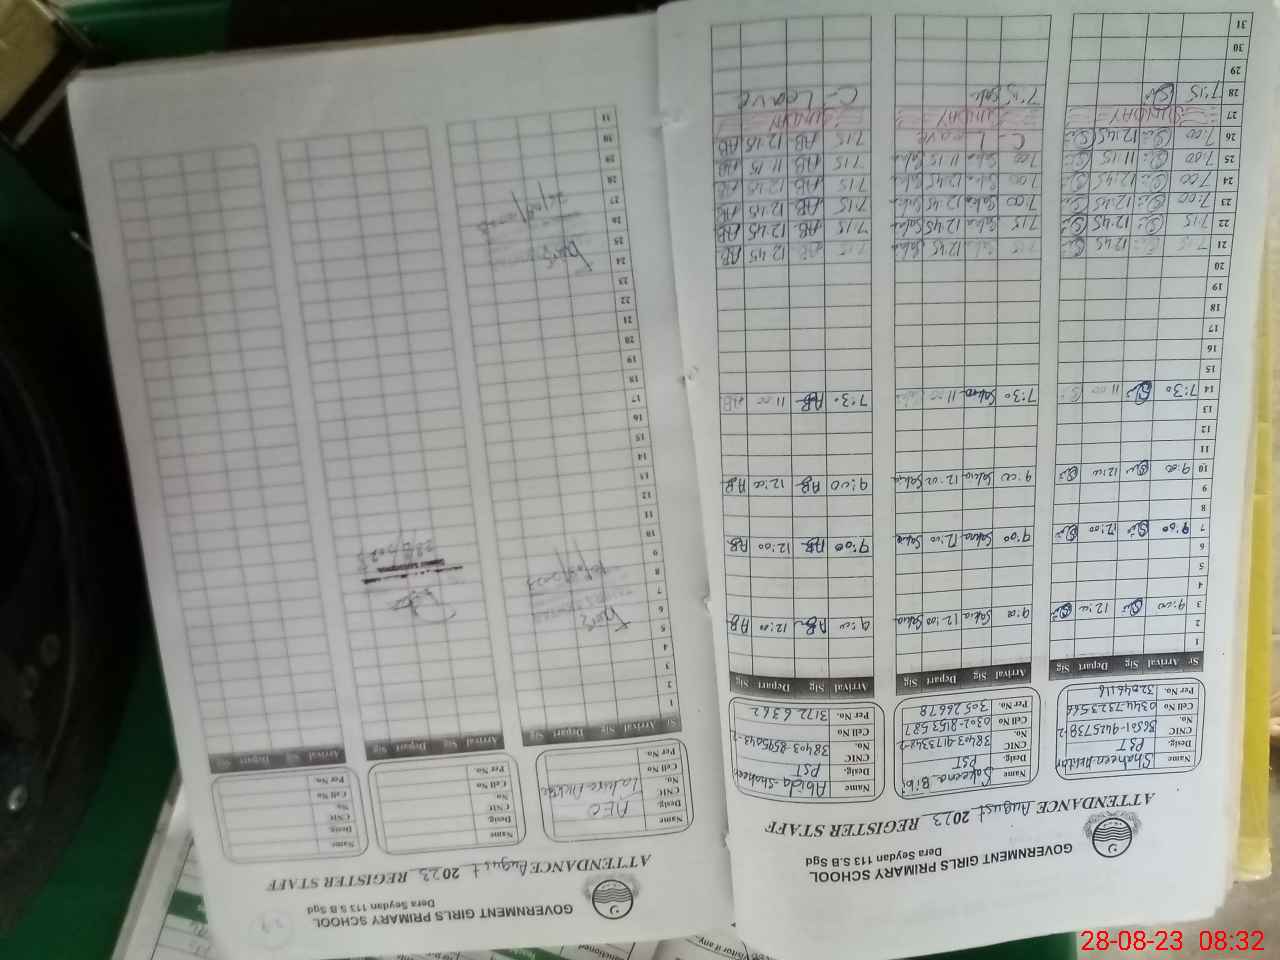 GOVERNMENT GIRLS PRIMARY SCHOOL
Dera Seydan 113 S.B Sgd
ATTENDANCE August 2023 REGISTER STAFF
Name Shaheen Akhtar
Desig. PST
CNIC No. 38501-9425738-2
Cell No 0344-7323566
Per No. 32046116
Name Sakeena Bibi
Desig. PST
CNIC No. 38403-9173348-2
Cell No 0302-8153587
Per No. 30526678
Name Abida Shaheen
Desig. PST
CNIC No. 38403-8595043-2
Cell No
Per No. 31726362
Sr Arrival Sig Depart Sig Arrival Sig Depart Sig Arrival Sig Depart Sig
1
2
3 9:00 12:00 9:00 Sakina 12:00 Sakina 9:00 AB 12:00 AB
4
5
6
7 9:00 12:00 9:00 Sakina 12:00 Sakina 9:00 AB 12:00 AB
8
9
10 9:00 12:00 9:00 Sakina 12:00 Sakina 9:00 AB 12:00 AB
11
12
13
14 7:30 11:00 7:30 Sakina 11:00 Sakina 7:30 AB 11:00 AB
15
16
17
18
19
20
21 7:15 12:45 7:15 Sakina 12:45 Sakina 7:15 AB 12:45 AB
22 7:15 12:45 7:15 Sakina 12:45 Sakina 7:15 AB 12:45 AB
23 7:00 12:45 7:00 Sakina 12:45 Sakina 7:15 AB 12:45 AB
24 7:00 12:45 7:00 Sakina 12:45 Sakina 7:15 AB 12:45 AB
25 7:00 11:15 7:00 Sakina 11:15 Sakina 7:15 AB 11:15 AB
26 7:00 12:45 C-Leave 7:15 AB 12:15 AB
27 SUNDAY SUNDAY SUNDAY
28 7:15 7:15 Sakina C-Leave
29
30
31
GOVERNMENT GIRLS PRIMARY SCHOOL
Dera Seydan 113 S.B Sgd
ATTENDANCE August 2023 REGISTER STAFF
Name
Desig. AEO
CNIC No.
Cell No
Per No.
Name
Desig
CNIC No
Cell No
Per No.
Name
Desig
CNIC No
Cell No
Per No.
Sr Arrival Sig Depart Sig Arrival Sig Depart Sig Arrival Sig Depart Sig
1
2
3
4
5
6
7
8
9
10
11
12
13
14
15
16
17
18
19
20
21
22
23
24
25
26
27
28
29
30
31
28-08-23 08:32